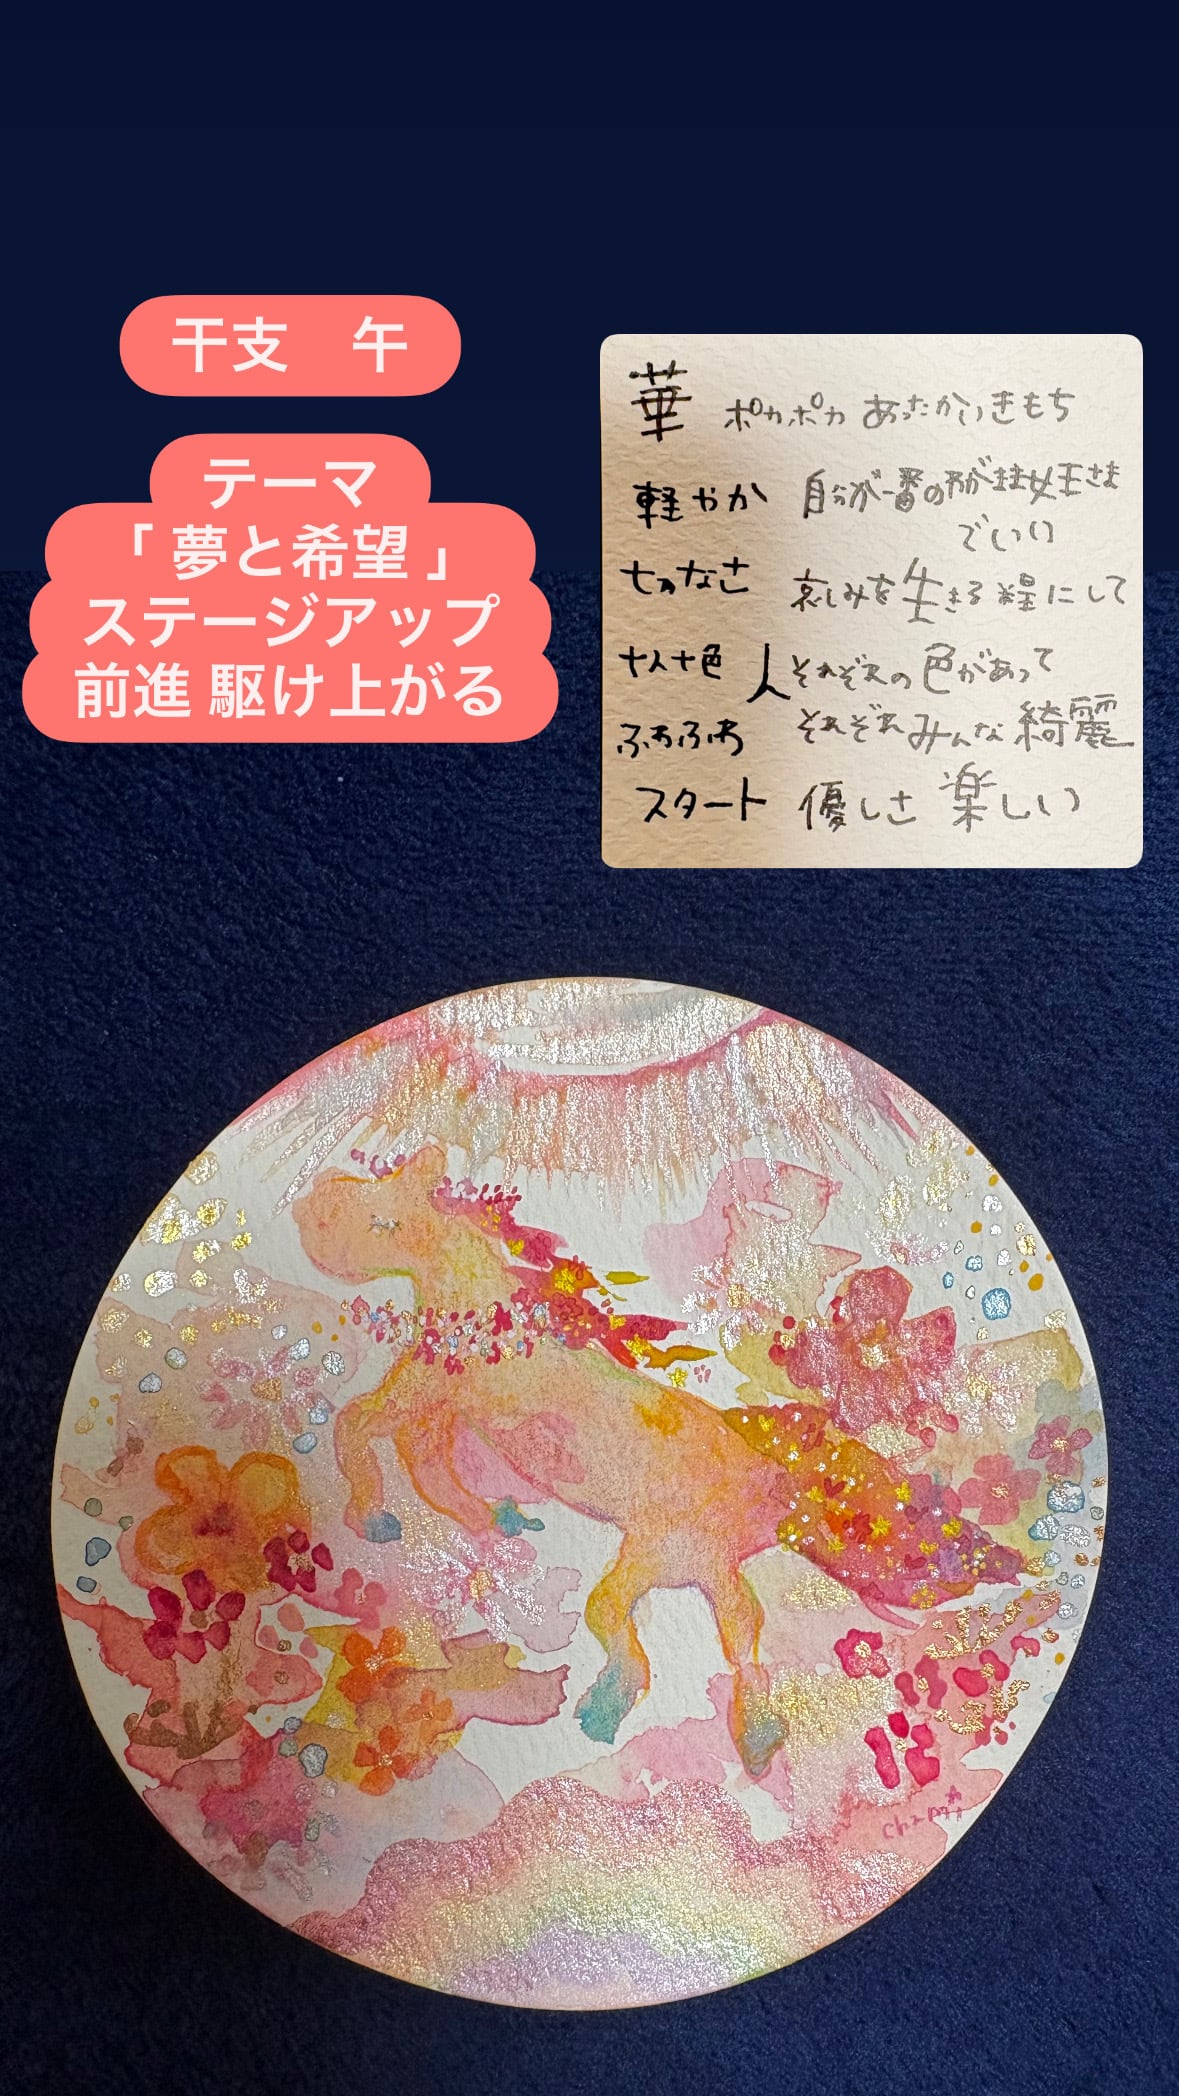 干支　午
テーマ
「 夢と希望 」
ステージアップ
前進 駆け上がる
華 ポカポカ あたたかいきもち
軽やか 自分が一番のわがまま女王さま
でいい
せつなさ 哀しみを生きる糧にして
十人十色 人それぞれの色があって
ふわふわ それぞれみんな綺麗
スタート 優しさ 楽しい